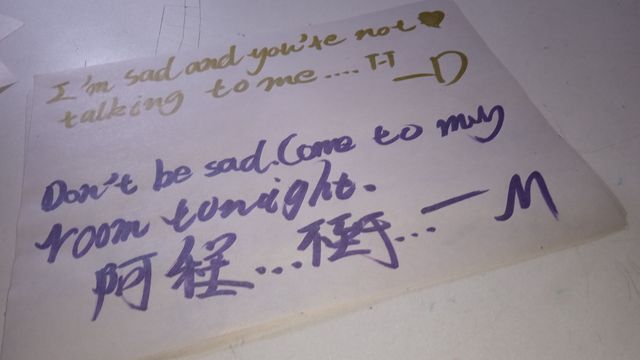 I'm sad and you're not ♥
talking to me.... T-T —D
Don't be sad. Come to my
room tonight.
阿程... ... — M